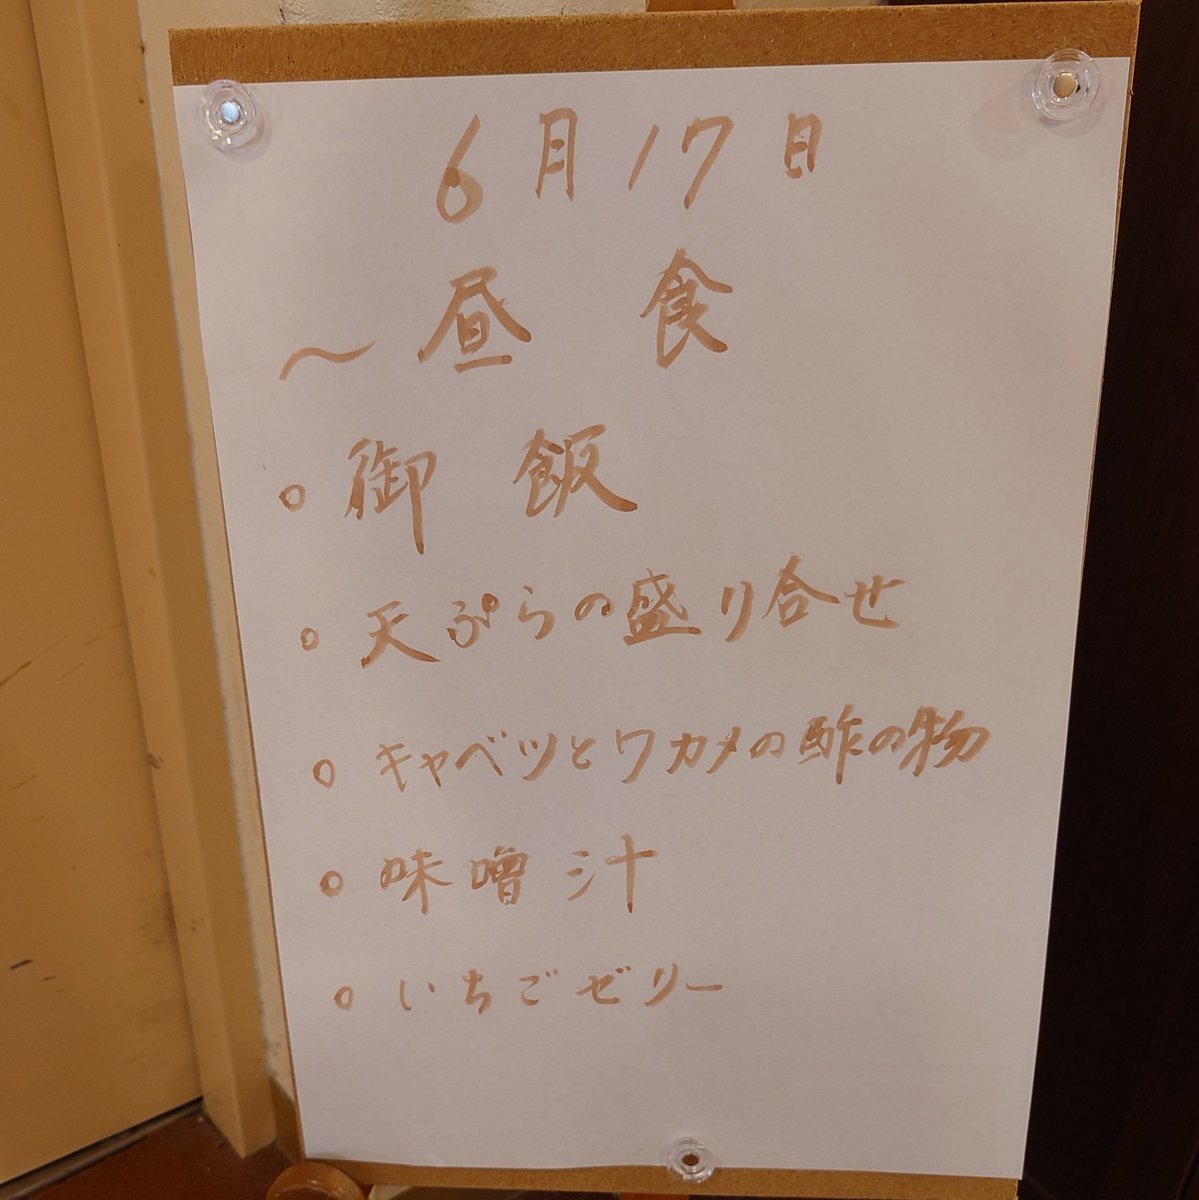 6月17日
〜昼食
○御飯
○天ぷらの盛り合せ
○キャベツとワカメの酢の物
○味噌汁
○いちごゼリー